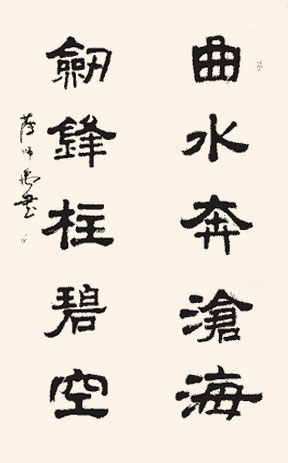 曲水奔滄海
劒鋒柱碧空
書